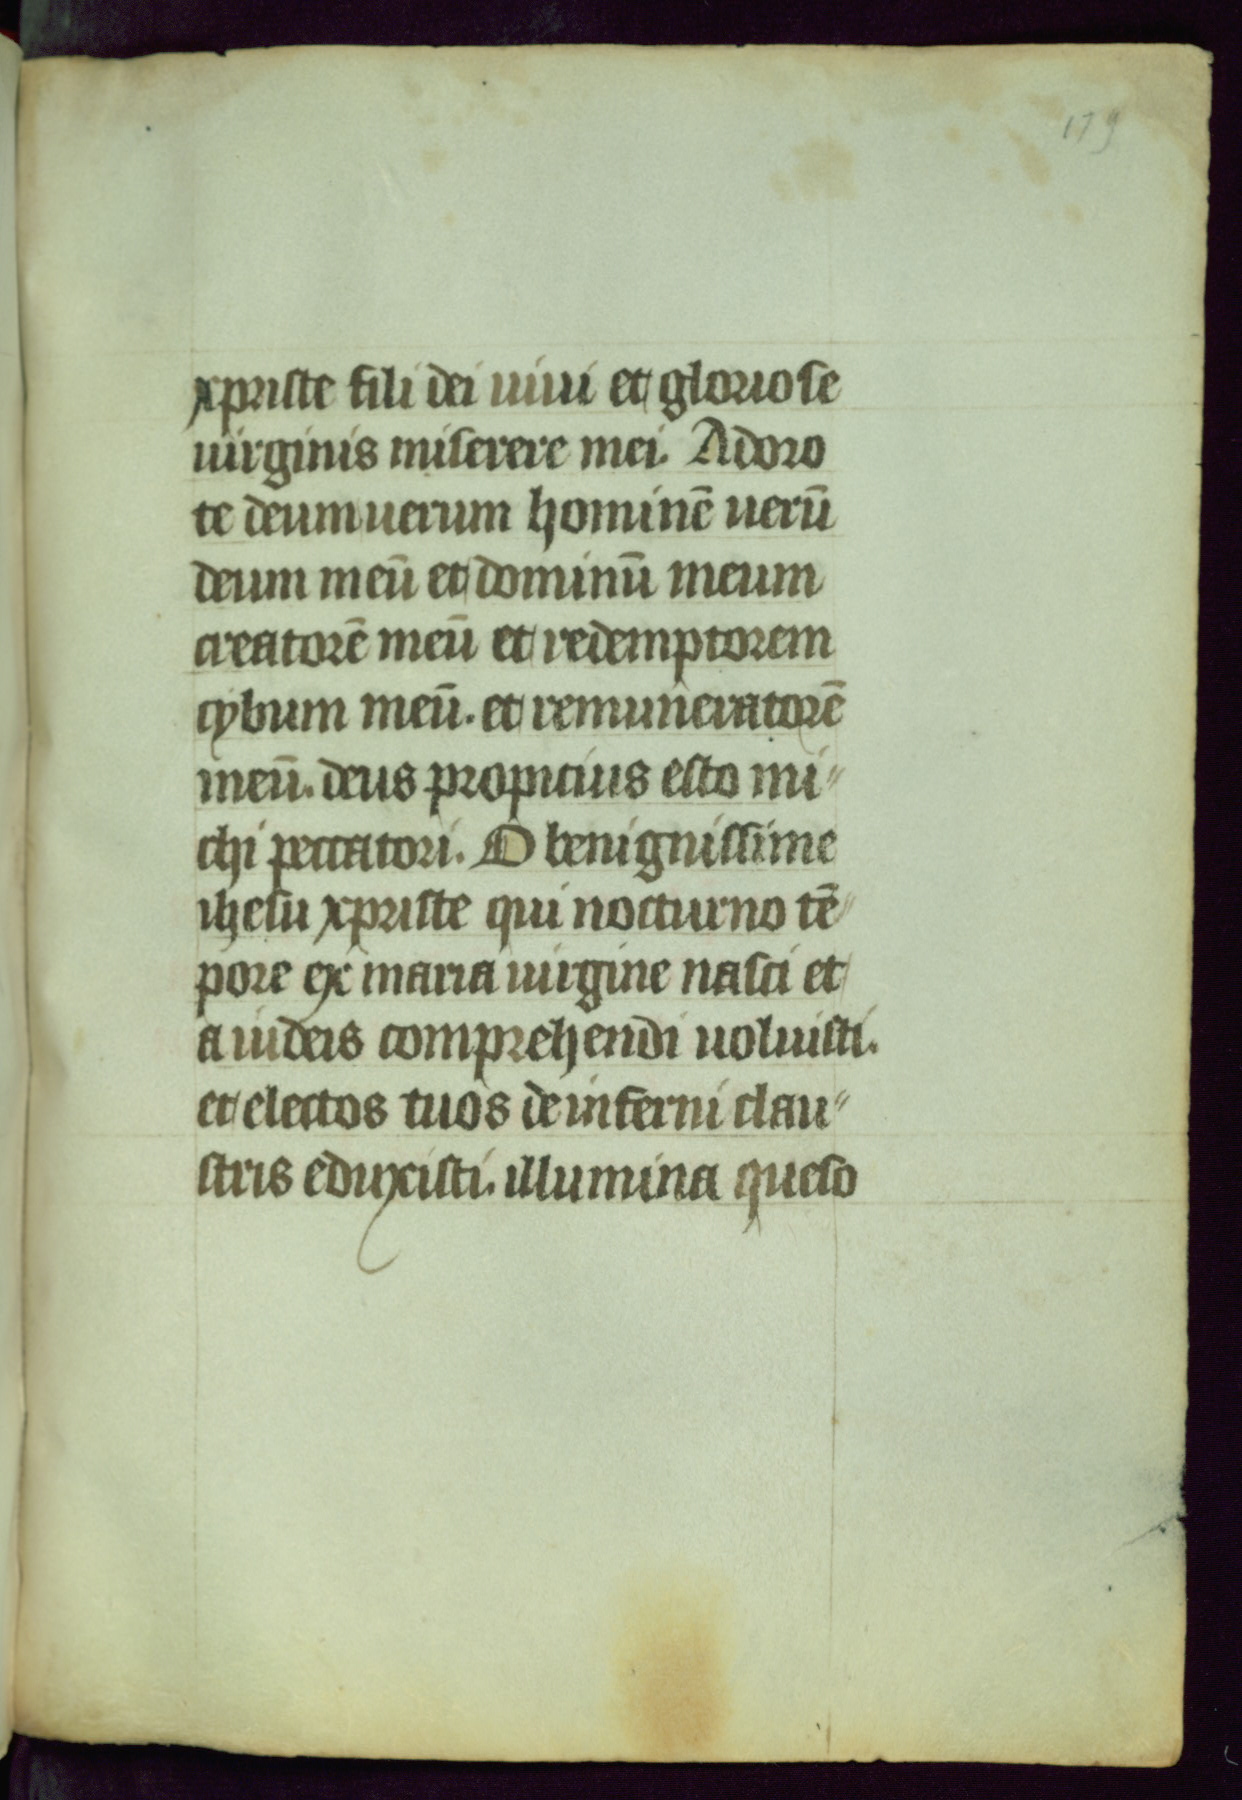 179
xpriste fili dei uiui et gloriose
uirginis miserere mei. Adoro
te deum uerum hominē uerū
deum meū et dominū meum
creatorē meū et redemptorem
cybum meū. et remuneratorē
meū. deus propicius esto mi〃
chi peccatori. O benignissime
ihesu xpriste qui nocturno tē〃
pore ex maria uirgine nasci et
a iudeis comprehendi uoluisti.
et electos tuos de inferni clau〃
stris eduxisti. illumina queso